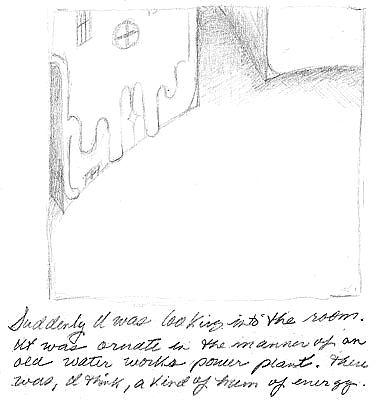 Suddenly I was looking into the room.
It was ornate in the manner of an
old water works power plant. There
was, I think, a kind of hum of energy.